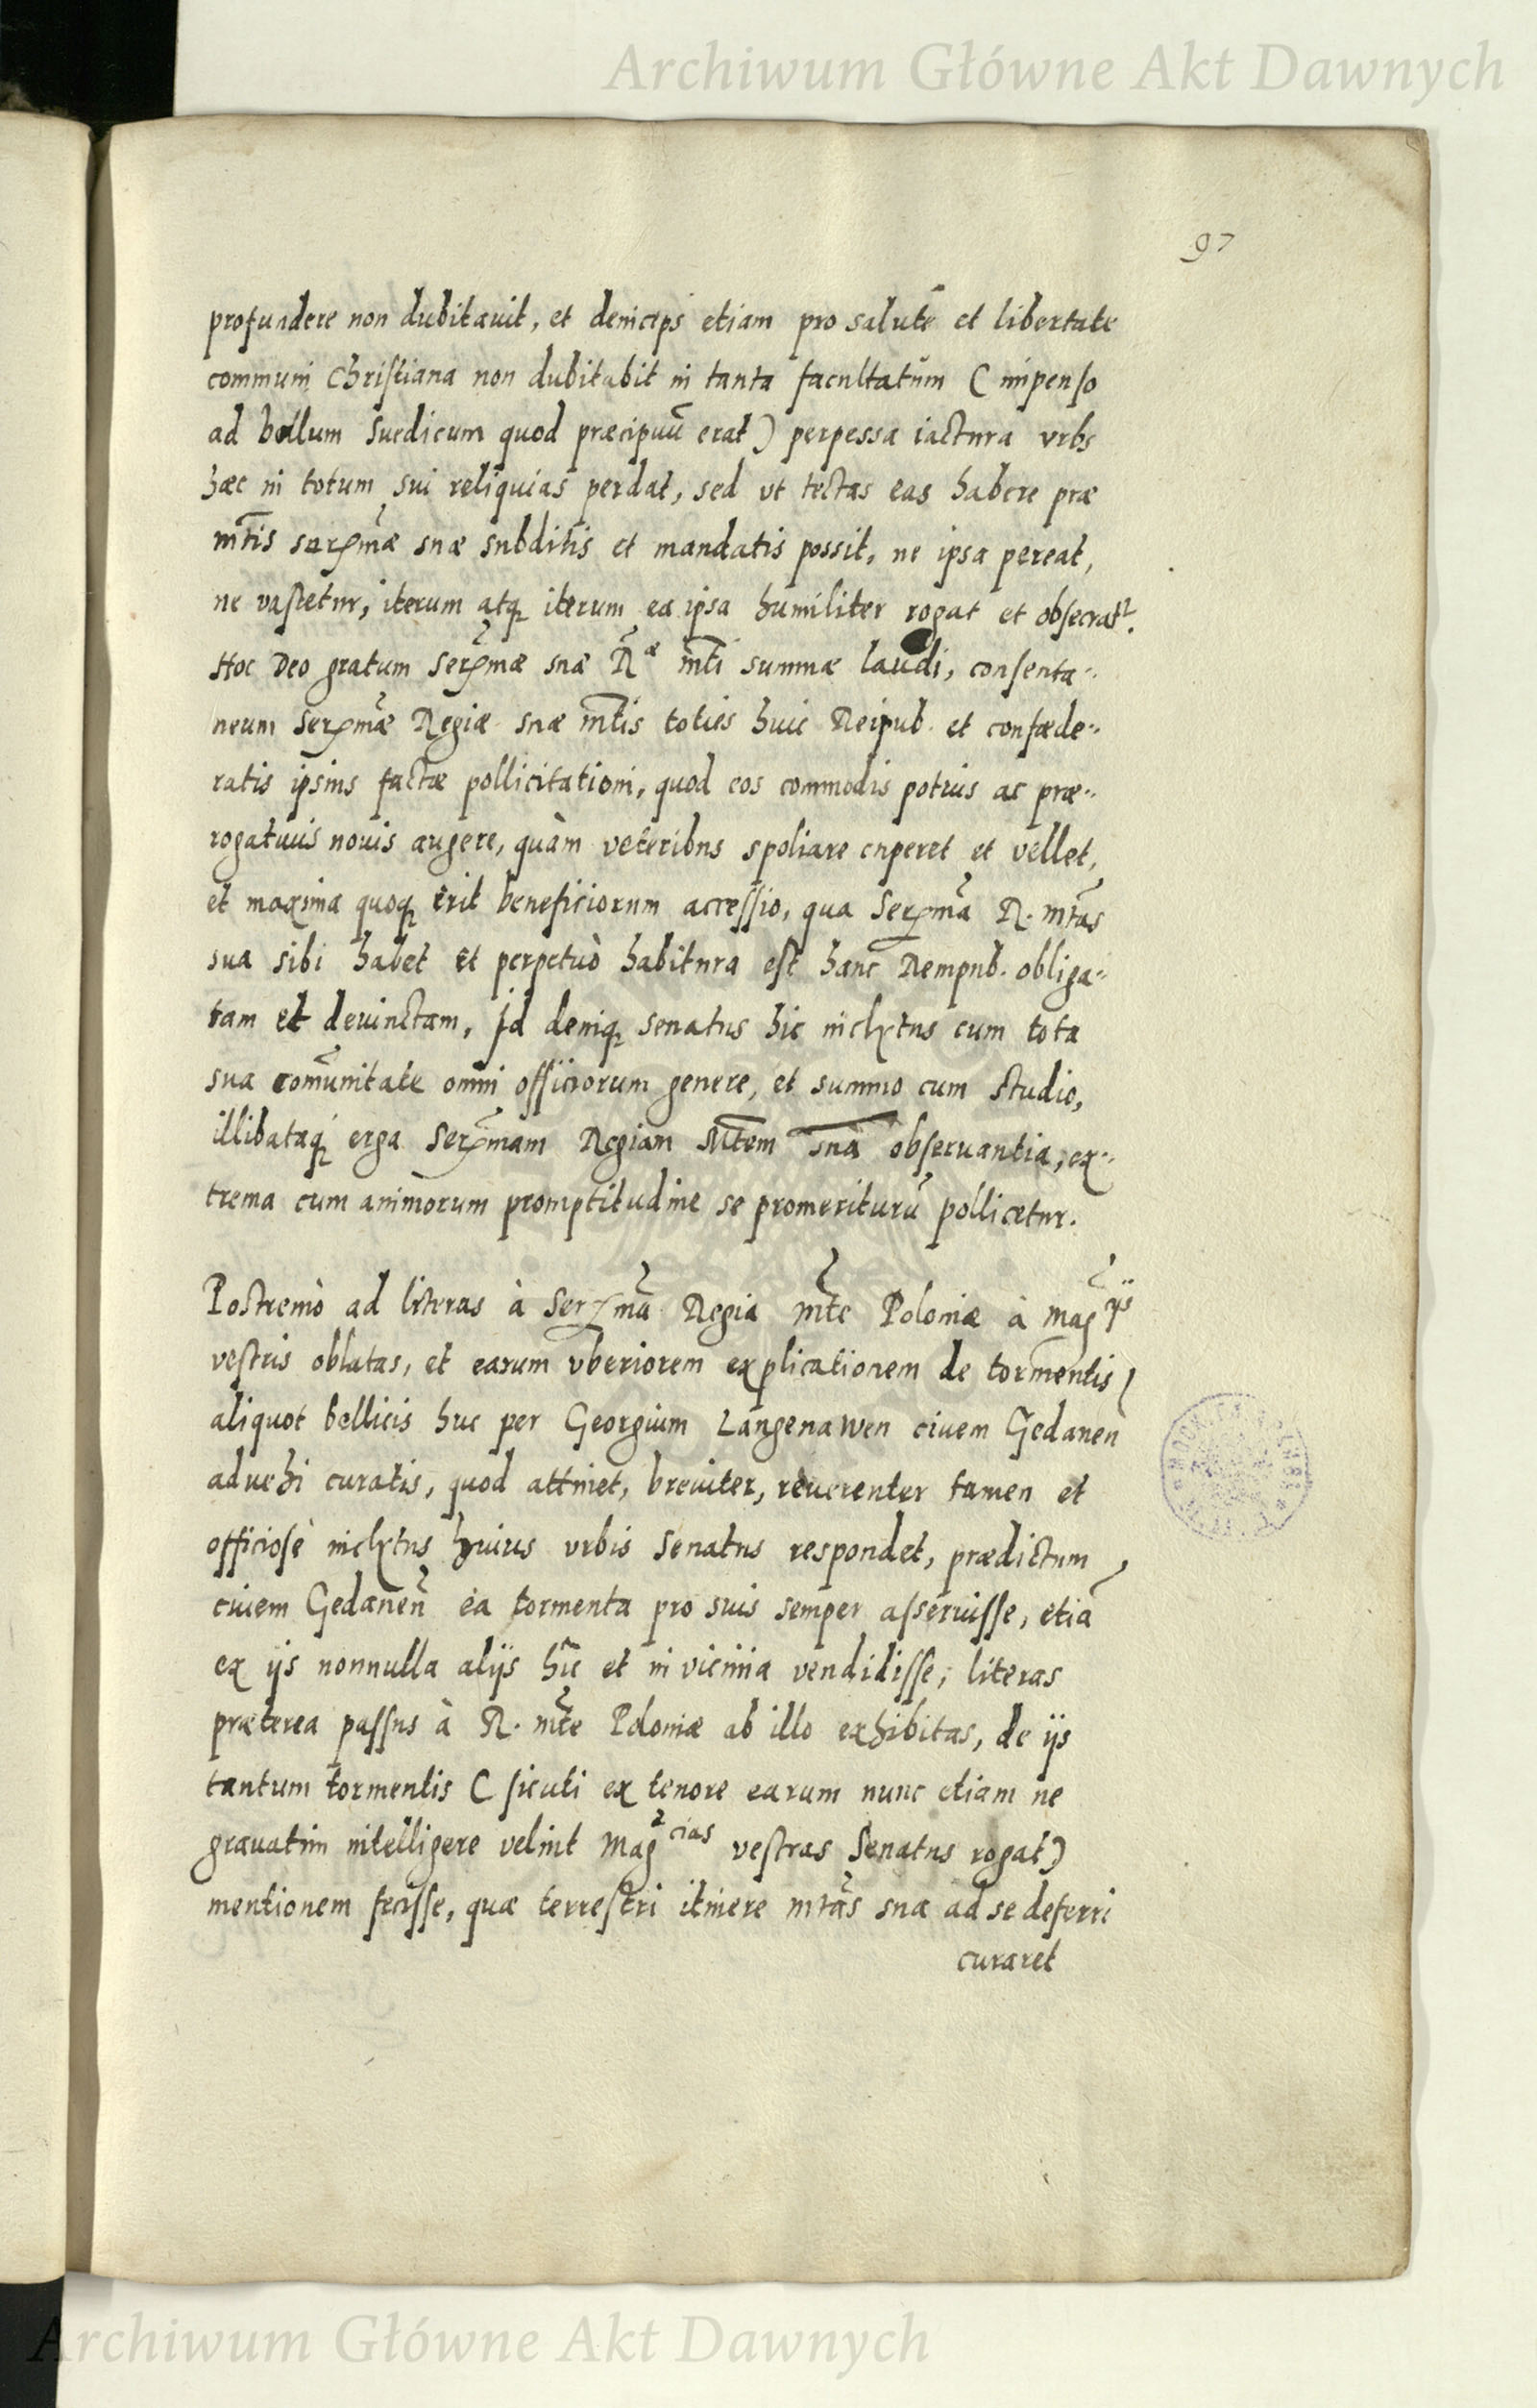 Archiwum Główne Akt Dawnych
97
profundere non dubitauit, et deinceps etiam pro salute et libertate
communi Christiana non dubitabit in tanta facultatum ( impenso
ad bellum Suedicum quod præcipuũ erat) perpessa iactura vrbs
hæc in totum sui reliquias perdat, sed vt tectas eas habere præ
mt̃is serẽmæ suæ subditis et mandatis possit, ne ipsa pereat,
ne vastetur, iterum atq iterum ea ipsa humiliter rogat et obsecrat.
Hoc Deo gratum serẽmæ suæ R̃æ mt̃i summæ laudi, consenta-
neum serẽmæ Regiæ suæ mt̃is toties huic Reipub. et confœde-
ratis ipsius factæ pollicitationi, quod eos commodis potius ac præ-
rogatiuis nouis augere, quàm veteribus spoliare cuperet et vellet,
et maxima quoq erit beneficiorum accessio, qua Serẽma R. mt̃as
sua sibi habet et perpetuò habitura est hanc Rempub. obliga-
tam et deuinctam, Id deniq senatus hic inclytus cum tota
sua com̃unitate omni officiorum genere, et summo cum studio,
illibataq erga Serẽmam Regiam Mt̃em suã obseruantia, ex-
trema cum animorum promptitudine se promeriturũ pollicetur.
Postremò ad literas à Serẽma Regia mt̃e Poloniæ à Mag ijs
vestris oblatas, et earum vberiorem explicationem de tormentis
aliquot bellicis huc per Georgium Langenawen ciuem Gedaneñ
aduehi curatis, quod attinet, breuiter, reuerenter tamen et
officiosè inclytus huius vrbis Senatus respondet, prædictum
ciuem Gedaneñ ea tormenta pro suis semper asseruisse, etiã
ex ijs nonnulla alijs hîc et in vicinia vendidisse, literas
præterea passus à R. mt̃e Poloniæ ab illo exhibitas, de ijs
tantum tormentis ( sicuti ex tenore earum nunc etiam ne
grauatim intelligere velint Mag cias vestras Senatus rogat)
mentionem fecisse, quæ terrestri itinere mt̃as sua ad se deferri
curaret
Archiwum Główne Akt Dawnych